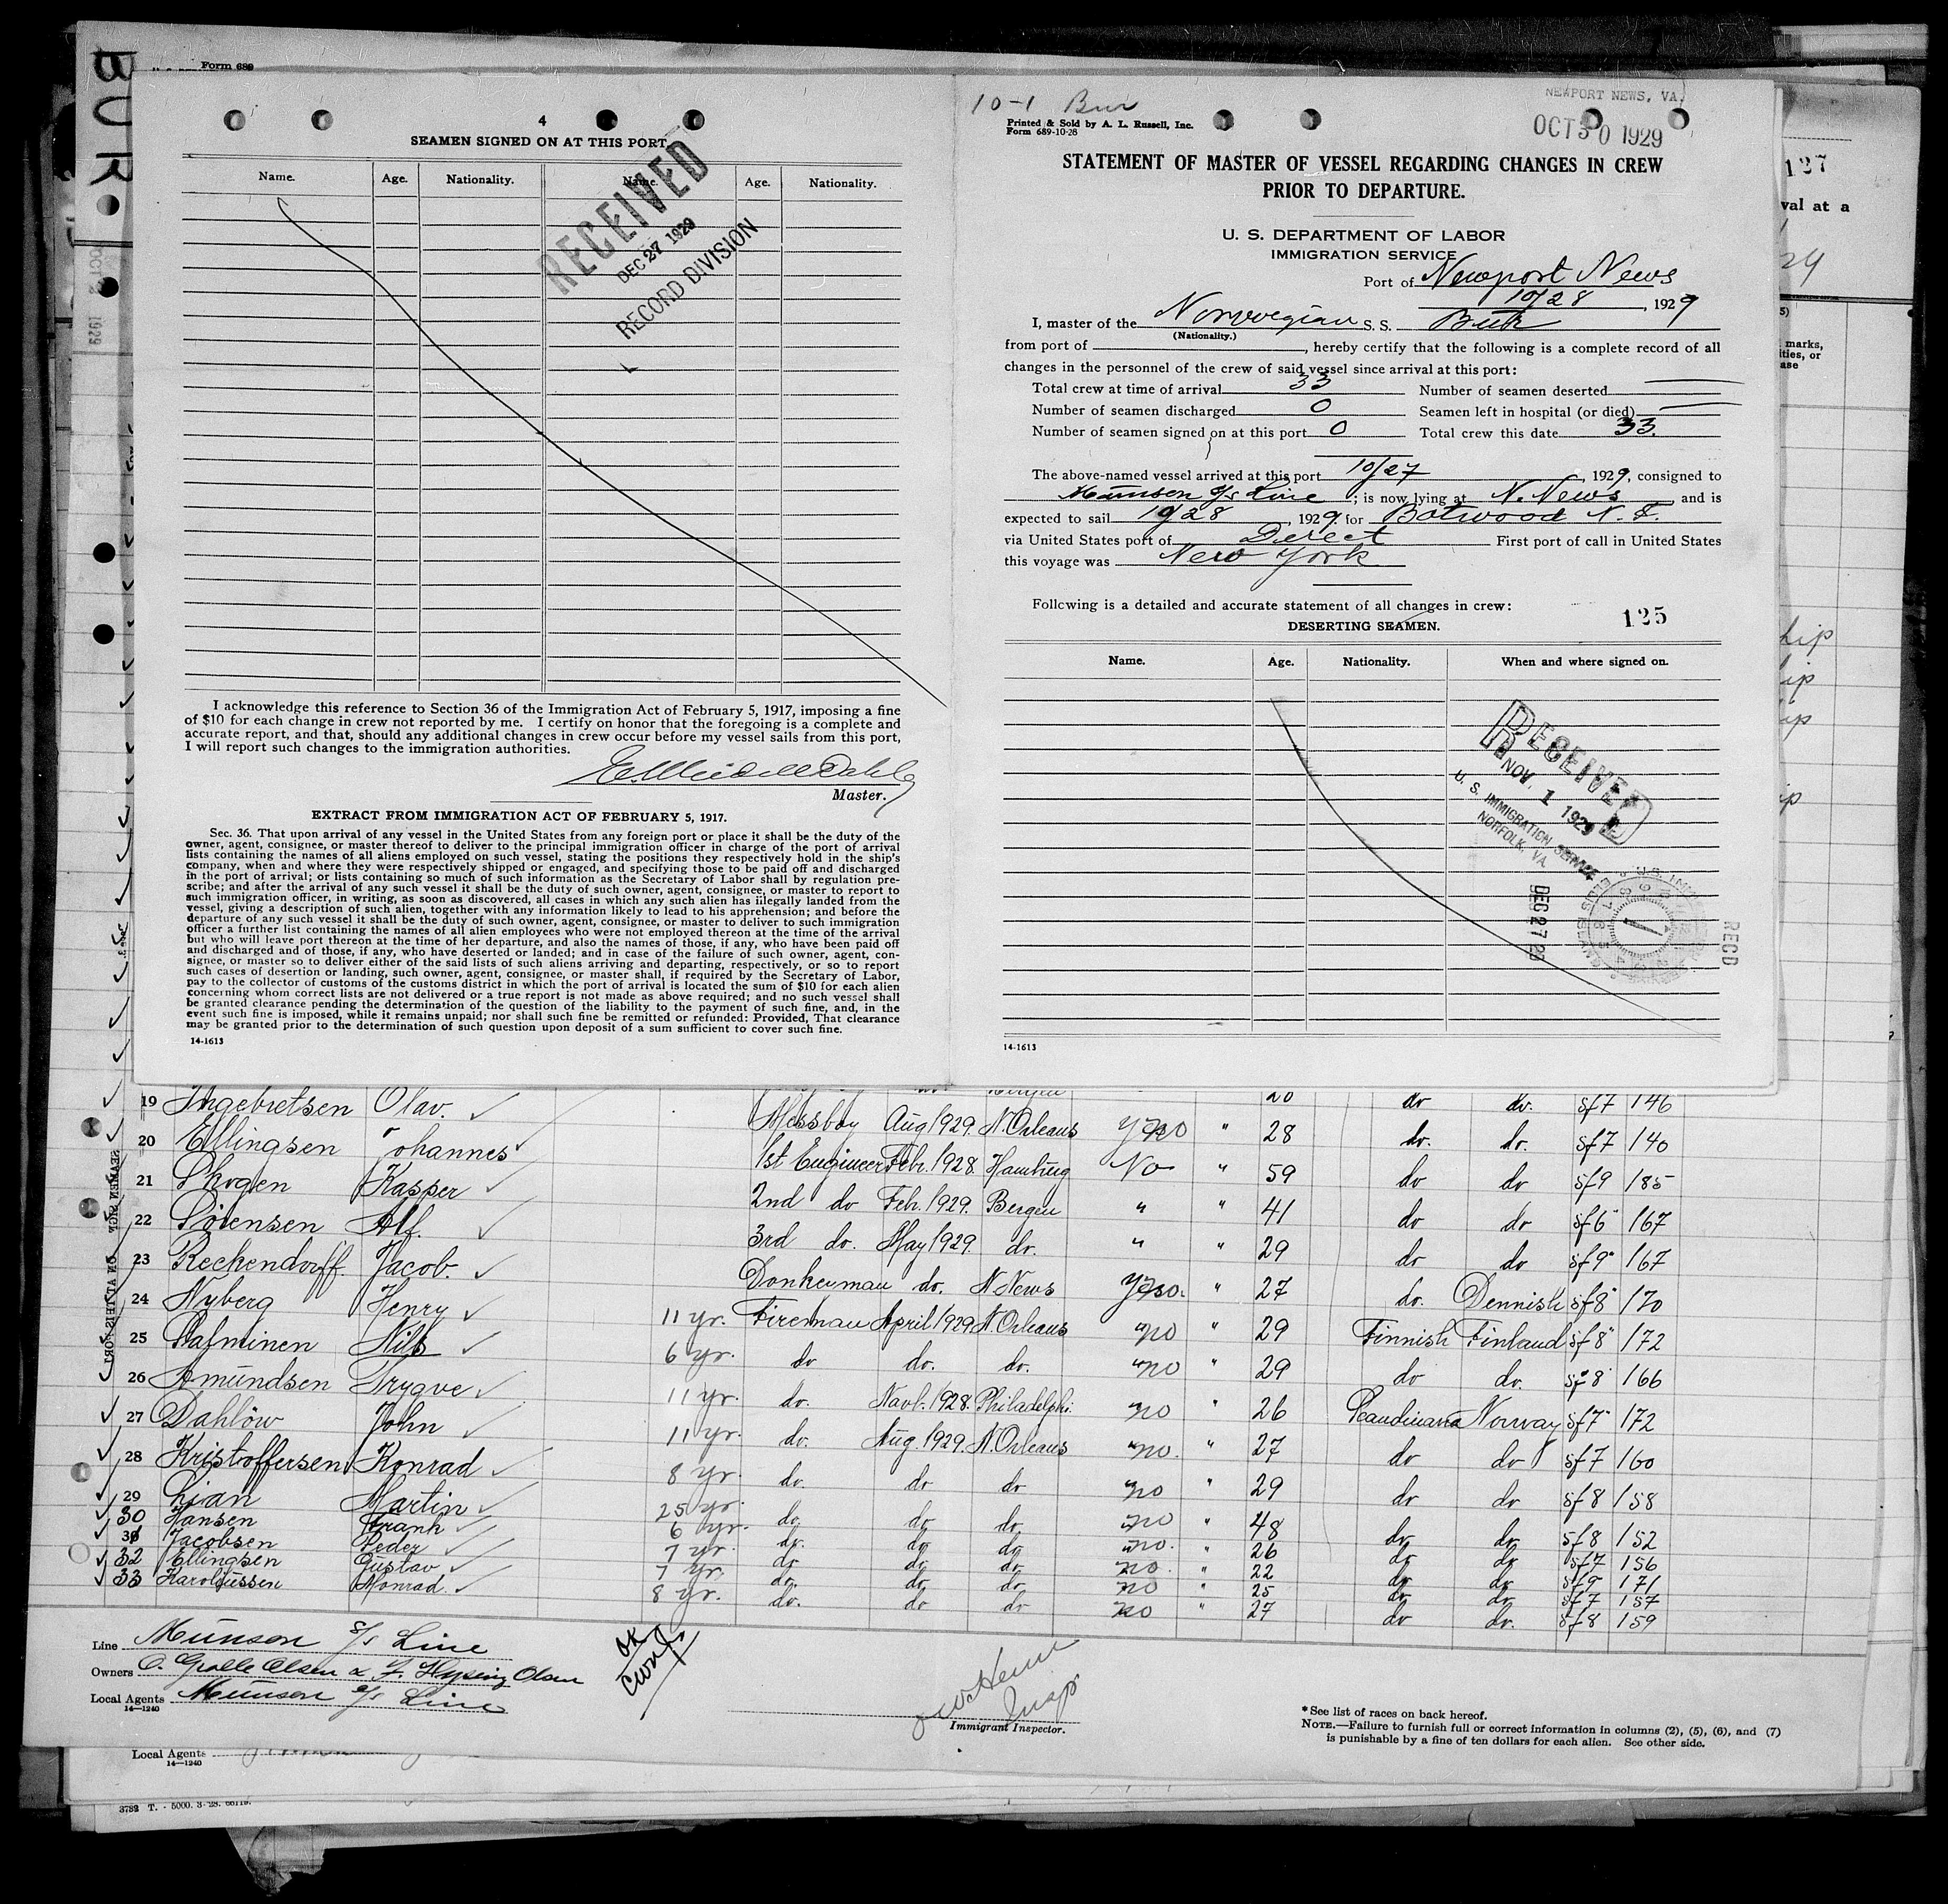 BUR
Form 689
4
SEAMEN SIGNED ON AT THIS PORT
Name. Age. Nationality. Name. Age. Nationality.
RECEIVED
DEC 27 1929
RECORD DIVISION
I acknowledge this reference to Section 36 of the Immigration Act of February 5, 1917, imposing a fine
of $10 for each change in crew not reported by me. I certify on honor that the foregoing is a complete and
accurate report, and that, should any additional changes in crew occur before my vessel sails from this port,
I will report such changes to the immigration authorities.
Master.
EXTRACT FROM IMMIGRATION ACT OF FEBRUARY 5, 1917.
Sec. 36. That upon arrival of any vessel in the United States from any foreign port or place it shall be the duty of the
owner, agent, consignee, or master thereof to deliver to the principal immigration officer in charge of the port of arrival
lists containing the names of all aliens employed on such vessel, stating the positions they respectively hold in the ship's
company, when and where they were respectively shipped or engaged, and specifying those to be paid off and discharged
in the port of arrival; or lists containing so much of such information as the Secretary of Labor shall by regulation pre-
scribe; and after the arrival of any such vessel it shall be the duty of such owner, agent, consignee, or master to report to
such immigration officer, in writing, as soon as discovered, all cases in which any such alien has illegally landed from the
vessel, giving a description of such alien, together with any information likely to lead to his apprehension; and before the
departure of any such vessel it shall be the duty of such owner, agent, consignee, or master to deliver to such immigration
officer a further list containing the names of all alien employees who were not employed thereon at the time of the arrival
but who will leave port thereon at the time of her departure, and also the names of those, if any, who have been paid off
and discharged and of those, if any, who have deserted or landed; and in case of the failure of such owner, agent, con-
signee, or master so to deliver either of the said lists of such aliens arriving and departing, respectively, or so to report
such cases of desertion or landing, such owner, agent, consignee, or master shall, if required by the Secretary of Labor,
pay to the collector of customs of the customs district in which the port of arrival is located the sum of $10 for each alien
concerning whom correct lists are not delivered or a true report is not made as above required; and no such vessel shall
be granted clearance pending the determination of the question of the liability to the payment of such fine, and, in the
event such fine is imposed, while it remains unpaid; nor shall such fine be remitted or refunded: Provided, That clearance
may be granted prior to the determination of such question upon deposit of a sum sufficient to cover such fine.
14-1613
10-1 Bur
Printed & Sold by A. L. Russell, Inc.
Form 689-10-28
NEWPORT NEWS, VA.
OCT 30 1929
STATEMENT OF MASTER OF VESSEL REGARDING CHANGES IN CREW
PRIOR TO DEPARTURE.
U. S. DEPARTMENT OF LABOR
IMMIGRATION SERVICE
Port of Newport News
10/28, 1929
I, master of the Norwegian S. S. Bur
(Nationality.)
from port of , hereby certify that the following is a complete record of all
changes in the personnel of the crew of said vessel since arrival at this port:
Total crew at time of arrival 33 Number of seamen deserted
Number of seamen discharged 0 Seamen left in hospital (or died)
Number of seamen signed on at this port 0 Total crew this date 33.
The above-named vessel arrived at this port 10/27, 1929, consigned to
Munson S/S Line; is now lying at N. News and is
expected to sail 10/28, 1929 for Botwood N. F.
via United States port of Direct First port of call in United States
this voyage was New York
Following is a detailed and accurate statement of all changes in crew:
DESERTING SEAMEN.
125
Name. Age. Nationality. When and where signed on.
RECEIVED
NOV. 1 1929
U. S. IMMIGRATION SERVICE
NORFOLK, VA.
DEC 27 29
REC'D
14-1613
127
val at a
marks,
ities, or
ase
19 Ingebretsen Olav. 20 do do. 5f7 146
20 Ellingsen Johannes Messboy Aug 1929. N Orleans no " 28 do. do. 5f7 140
21 Skogen Kasper 1st Engineer Febr. 1928 Hamburg No " 59 do do 5f9 185
22 Sörensen Alf. 2nd do Febr. 1929. Bergen " " 41 do do 5f6 167
23 Reckendorff. Jacob. 3rd do. May 1929. do. " " 29 do do 5f9 167
24 Nyberg Henry Donkeyman do. N News " 27 do. Dennish 5f8 170
25 Salminen Nils 11 yr. Fireman April 1929 N. Orleans no " 29 Finnish Finland 5f8 172
26 Amundsen Trygve 6 yr. do do. do. no " 29 do do. 5f8 166
27 Dahlöw John 11 yr. do. Novb. 1928. Philadelphi no " 26 Scandinavia Norway 5f7 172
28 Kristoffersen Konrad 11 yr. do. Aug. 1929. N. Orleans no. " 27 do do 5f7 160
29 Lian Martin 8 yr. do. do do no " 29 do do 5f8 158
30 Hansen Frank 25 yr. do. do do. no " 48 do. do. 5f8 152
31 Jacobsen Peder 6 yr. do. do do no. " 26 do do 5f7 156
32 Ellingsen Gustav 7 yr. do do. do no. " 22 do do 5f9 171
33 Karolussen Monrad. 7 yr. do. do. do. no " 25 do do. 5f7 157
8 yr. do. do do no " 27 do do. 5f8 159
Line Munson S/S Line
Owners O. Grolle Olsen & F. Hysing Olsen
Local Agents Munson S/S Line
14—1240
OK
Insp
Immigrant Inspector.
* See list of races on back hereof.
NOTE.—Failure to furnish full or correct information in columns (2), (5), (6), and (7)
is punishable by a fine of ten dollars for each alien. See other side.
Local Agents
14—1240
3782 T. - 5000. 3-28. 66119.